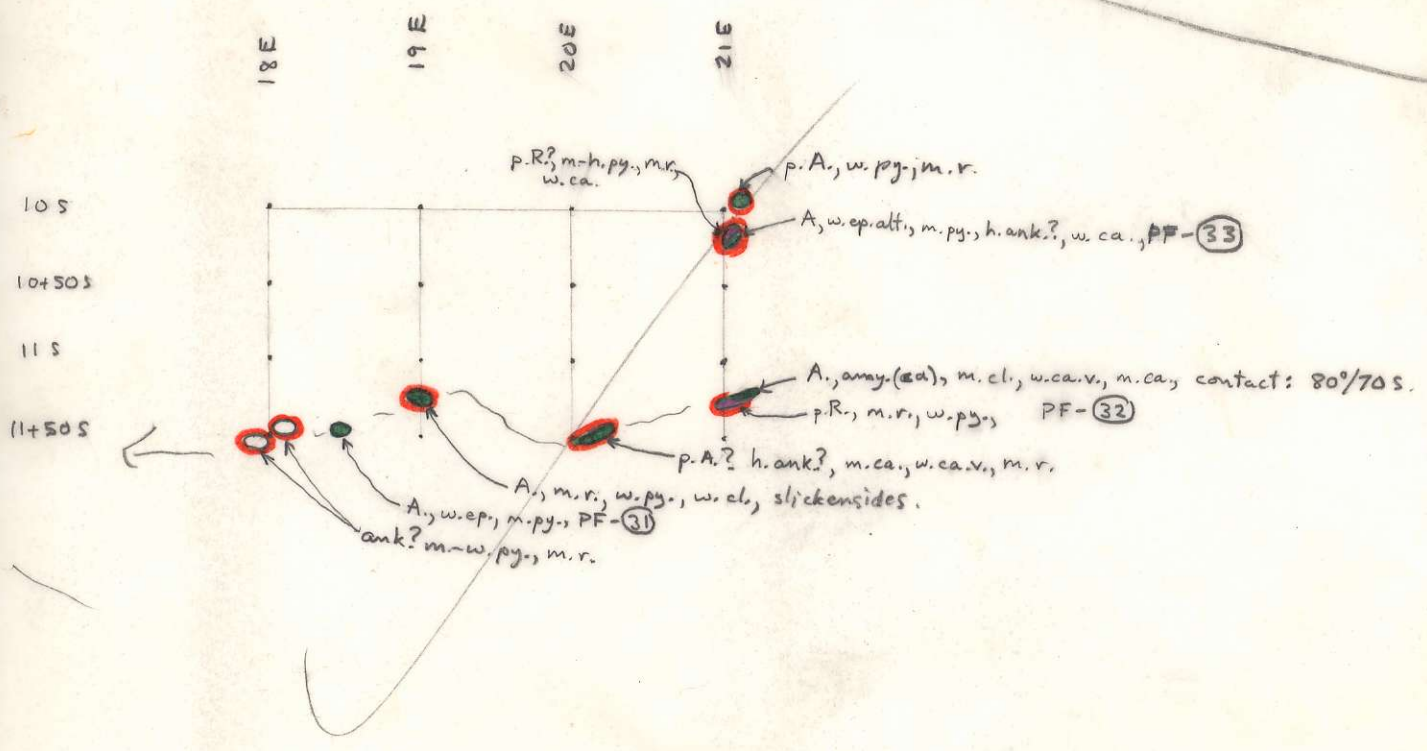 18E
19E
20E
21E
p.R?, m-h.py., m.r.,
w.ca.
p.A., w.py., m.r.
10S
A, w.ep.alt., m.py., h.ank.?, w.ca., PF-33
10+50S
11S
A., amy.(ca), m.cl., w.ca.v., m.ca., contact: 80°/70S.
p.R., m.r., w.py., PF-32
11+50S
p.A.? h.ank?, m.ca., w.ca.v., m.r.
A., m.r., w.py., w.cl., slickensides.
A., w.ep., m.py., PF-31
ank? m.-w.py., m.r.